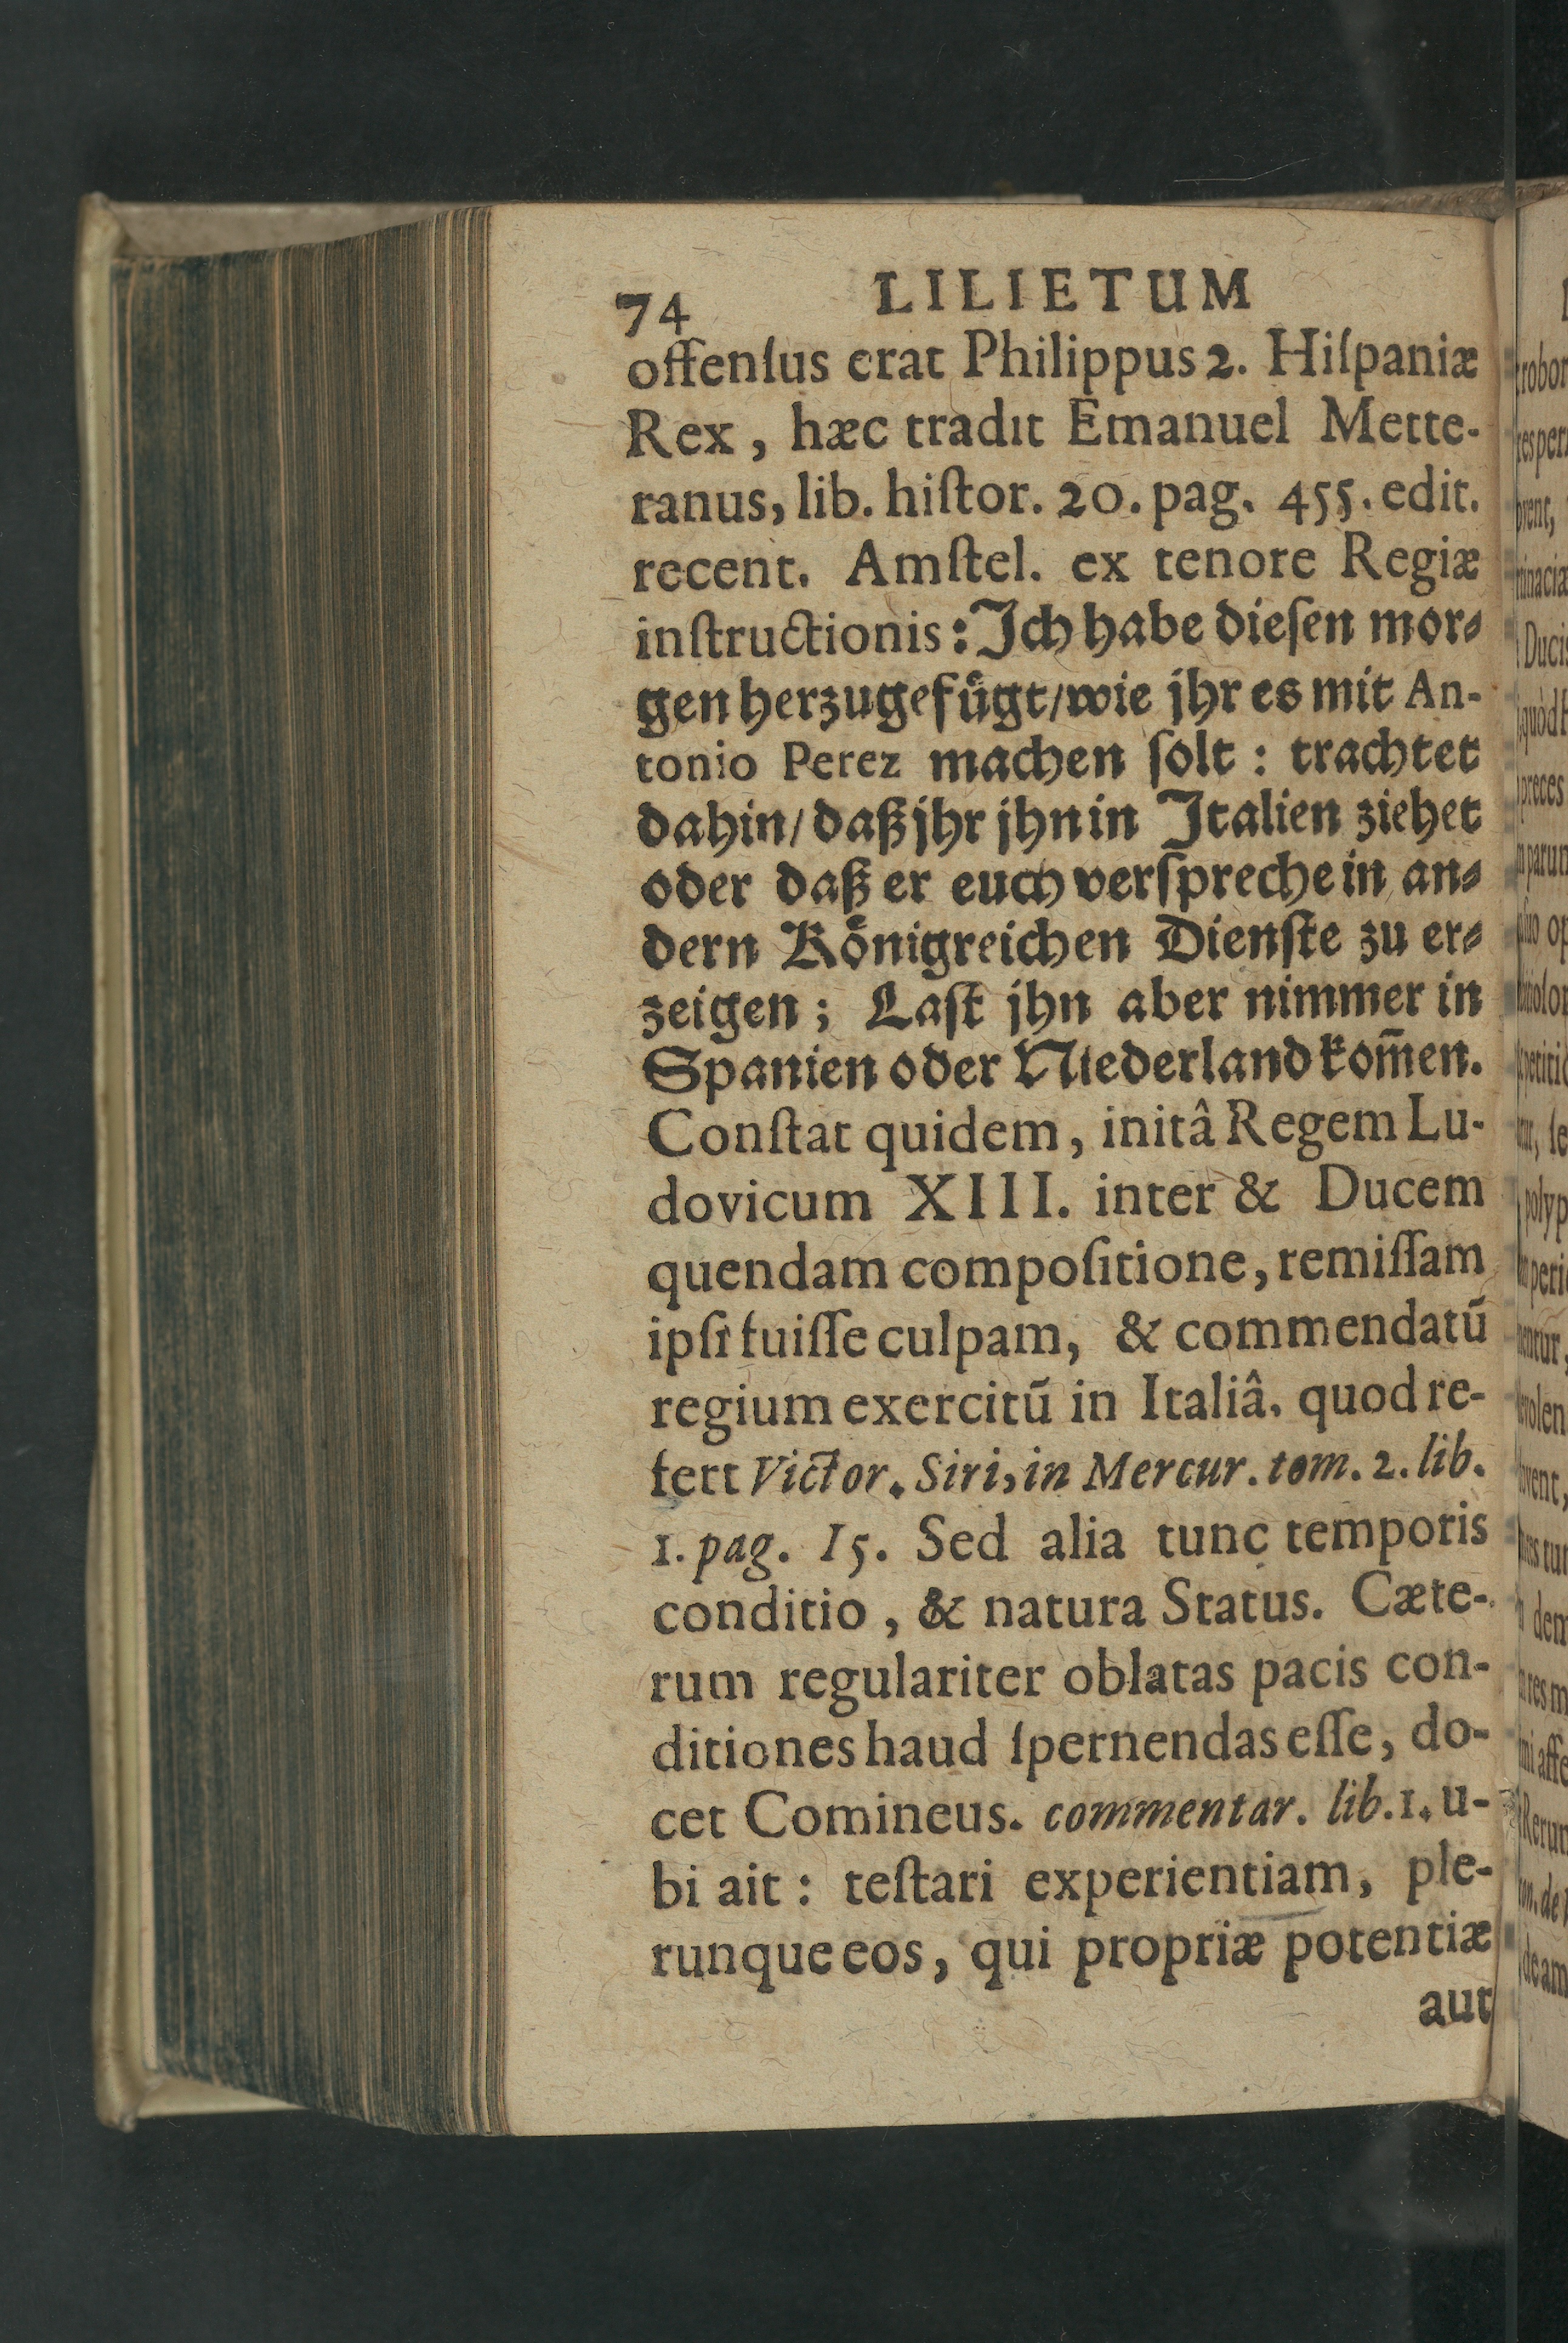 74 LILIETUM
offenſus erat Philippus 2. Hiſpaniæ
Rex, hæc tradit Emanuel Mette-
ranus, lib. hiſtor. 20. pag. 455. edit.
recent. Amſtel. ex tenore Regiæ
inſtructionis: Ich habe dieſen mor⸗
gen herzugefuͤgt/ wie jhr es mit An-
tonio Perez machen ſolt: trachtet
dahin/ daß jhr jhn in Italien ziehet
oder daß er euch verſpreche in an⸗
dern Koͤnigreichen Dienſte zu er⸗
zeigen; Laſt jhn aber nimmer in
Spanien oder Niederland kom̃en.
Conſtat quidem, initâ Regem Lu-
dovicum XIII. inter & Ducem
quendam compoſitione, remiſſam
ipſi fuiſſe culpam, & commendatũ
regium exercitũ in Italiâ, quod re-
fert Victor. Siri, in Mercur. tom. 2. lib.
1. pag. 15. Sed alia tunc temporis
conditio, & natura Status. Cæte-
rum regulariter oblatas pacis con-
ditiones haud ſpernendas eſſe, do-
cet Comineus. commentar. lib. 1. u-
bi ait: teſtari experientiam, ple-
runque eos, qui propriæ potentiæ
aut